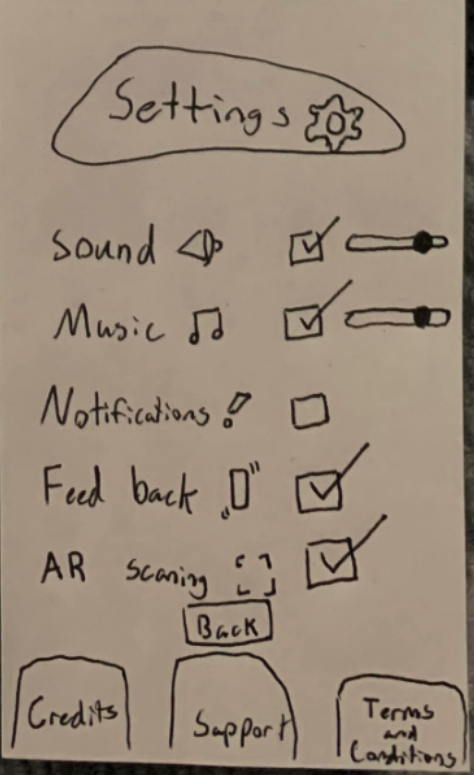 Settings
Sound
Music
Notifications !
Feed back
AR scaning
Back
Credits
Support
Terms
and
Conditions